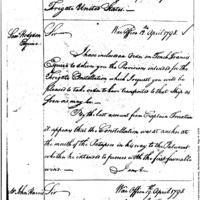 Frigate United States.
Sam Hodgdon
Esquire
Sir
War Office 17 April 1798
I have inclosed an Order on Tench Francis
Esquire to deliver you the Provisions intended for the
Frigate Constellation which I request you will be
pleased to take order to have transported to that Ship as
soon as may be.
By the last account from Captain Truxtun
it appears that the Constellation was at anchor at
the mouth of the Patapsco in his way to the Patuxent
whither he intended to proceed with the first favorable
wind.
Mr John Harris
Sir
War Office 17 April 1798